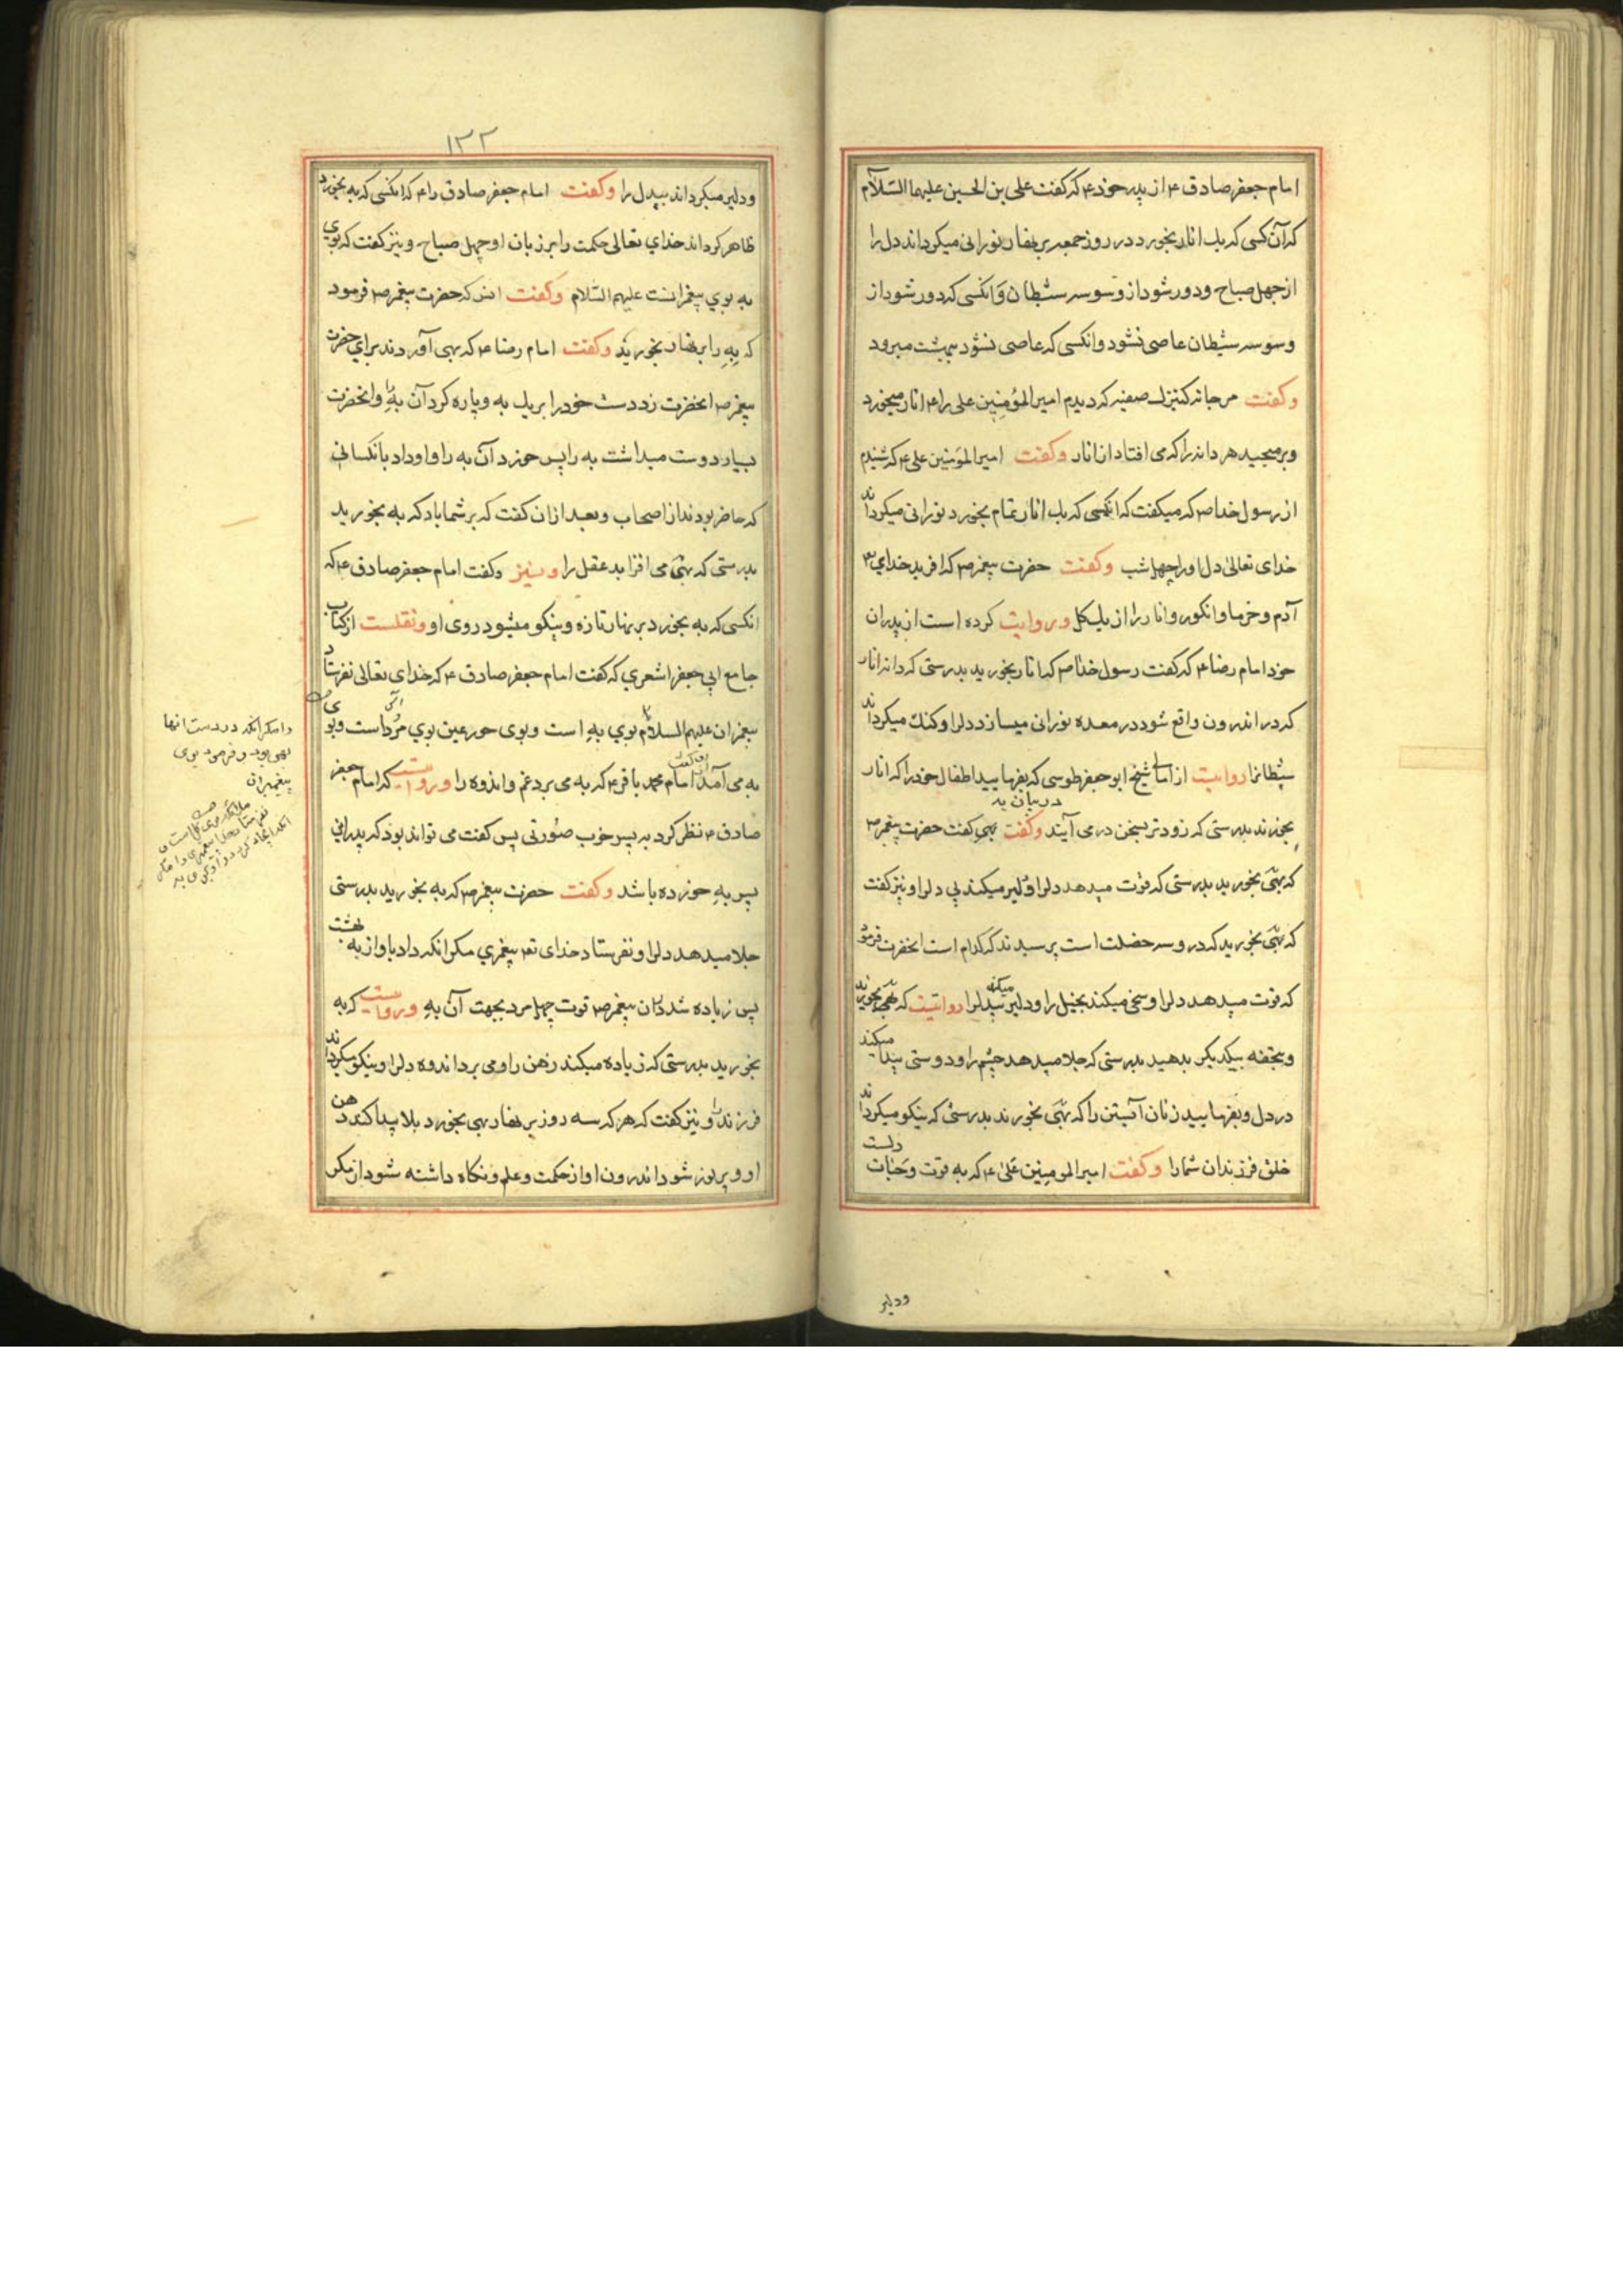 امام جعفر صادق ع از پدر خود ع که گفت علی بن الحسین علیهما السّلام
که آن کسی که یك انار بخورد در روز جمعه بر نهار نورانی میکرداند دل را
از چهل صباح و دور شود از وسوسه شیطان و انکسی که دور شود از
وسوسه شیطان عاصی نشود و انکسی که عاصی نشود ببهشت میرود
وکفت مرجانه کنیزك صفیه که دیدم امیر المؤمنین علی را ع انار میخورد
و برمیچید هر دانه را که می افتاد از انار وکفت امیر المؤمنین علی ع که شنیدم
از رسول خدا ص که میکفت که انکسی که یك انار تمام بخورد نورانی میکرداند
خدای تعالی دل او را چهل شب وکفت حضرت پیغمبر ص که افرید خدای تع
آدم و خرما و انکور و انار را از یك کل و روایت کرده است از پدران
خود امام رضا ع که گفت رسول خدا ص که انار بخورید بدرستی که دانه انار
که در اندرون واقع شود در معده نورانی میسازد دلرا و کنك میکرداند
شیطانرا روایت از امالی شیخ ابو جعفر طوسی که بفرمایید اطفال خود را که انار
در بیان به
بخورند بدرستی که زودتر بسخن در می آیند وکفت بهی کفت حضرت پیغمبر ص
که بهی بخورید بدرستی که قوت میدهد دلرا و دلیر میکند بی دلرا و نیز کفت
که بهی بخورید که در و سه خصلت است پرسیدند که کدام است انحضرت فرمود
که قوت میدهد دلرا و سخی میکند بخیل را و دلیر میکند بیدلرا روایتست که بهی بخورید
و بتحفه بیکدیکر بدهید بدرستی که جلا میدهد چشم را و دوستی پیدا میکند
در دل و بفرمایید زنان آبستن را که بهی بخورند بدرستی که نیکو میکرداند
خلق فرزندان شما را وکفت امیر المومنین علی ع که به قوت و حیات دلست
ودلیر
۱۲۲
ودلیر میکرداند بیدل را وکفت امام جعفر صادق را ع که انکسی که به بخورد
ظاهر کرداند خدای تعالی حکمت را بر زبان او چهل صباح و نیز کفت که بوی
به بوی پیغمبرانست علیهم السّلام وکفت انس که حضرت پیغمبر ص فرمود
که به را بر نهار بخورید وکفت امام رضا ع که بهی آوردند برای حضرت
پیغمبر ص انحضرت زد دست خود را بر یك به و پاره کرد آن به را و انحضرت
بسیار دوست میداشت به را پس خورد آن به را و او داد بانکسانی
که حاضر بودند از اصحاب و بعد ازان کفت که بر شما باد که به بخورید
بدرستی که بهی می افزاید عقل را و نیز وکفت امام جعفر صادق ع که
انکسی که به بخورد بر نهار تازه و نیکو میشود روی او و نقلست از کتاب
جامع ابی جعفر اشعری که کفت امام جعفر صادق ع که خدای تعالی نفرستاد
پیغمبران علیهم السلام بوی به است و بوی حور عین بوی مورد است و بوی
به می آمد از امام محمد باقر ع که به می برد غم و اندوه را و روایتست که امام جعفر
صادق ع نظر کرد به پسر خوب صورتی پس کفت می تواند بود که پدر این
پسر به خورده باشد وکفت حضرت پیغمبر ص که به بخورید بدرستی
جلا میدهد دلرا و نفرستاد خدای تع پیغمبری مکر انکه داد باو از به بهشت
پس زیاده شد دران پیغمبر ص قوت چهل مرد بجهت آن به و روایتست که به
بخورید بدرستی که زیاده میکند ذهن را و می برد اندوه دلرا و نیکو میکرداند
فرزند را و نیز کفت که هر که سه روز بر نهار بهی بخورد بلا پیدا کند ذهن
او و پر نور شود اندرون او از حکمت و علم و نکاه داشته شود از مکر
را مکر انکه در دست انها
بهی بود و فرمود بوی
پیغمبران